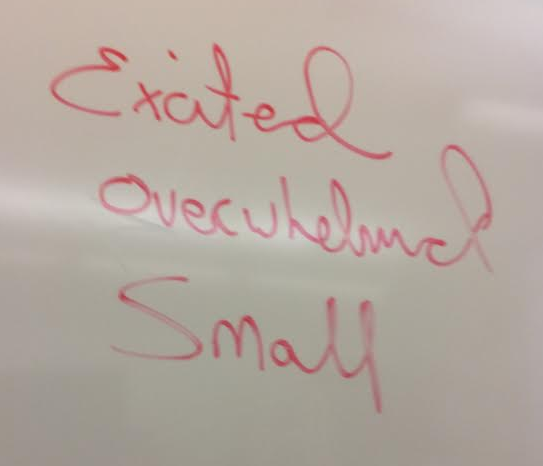 Exited
Overwhelmed
Small